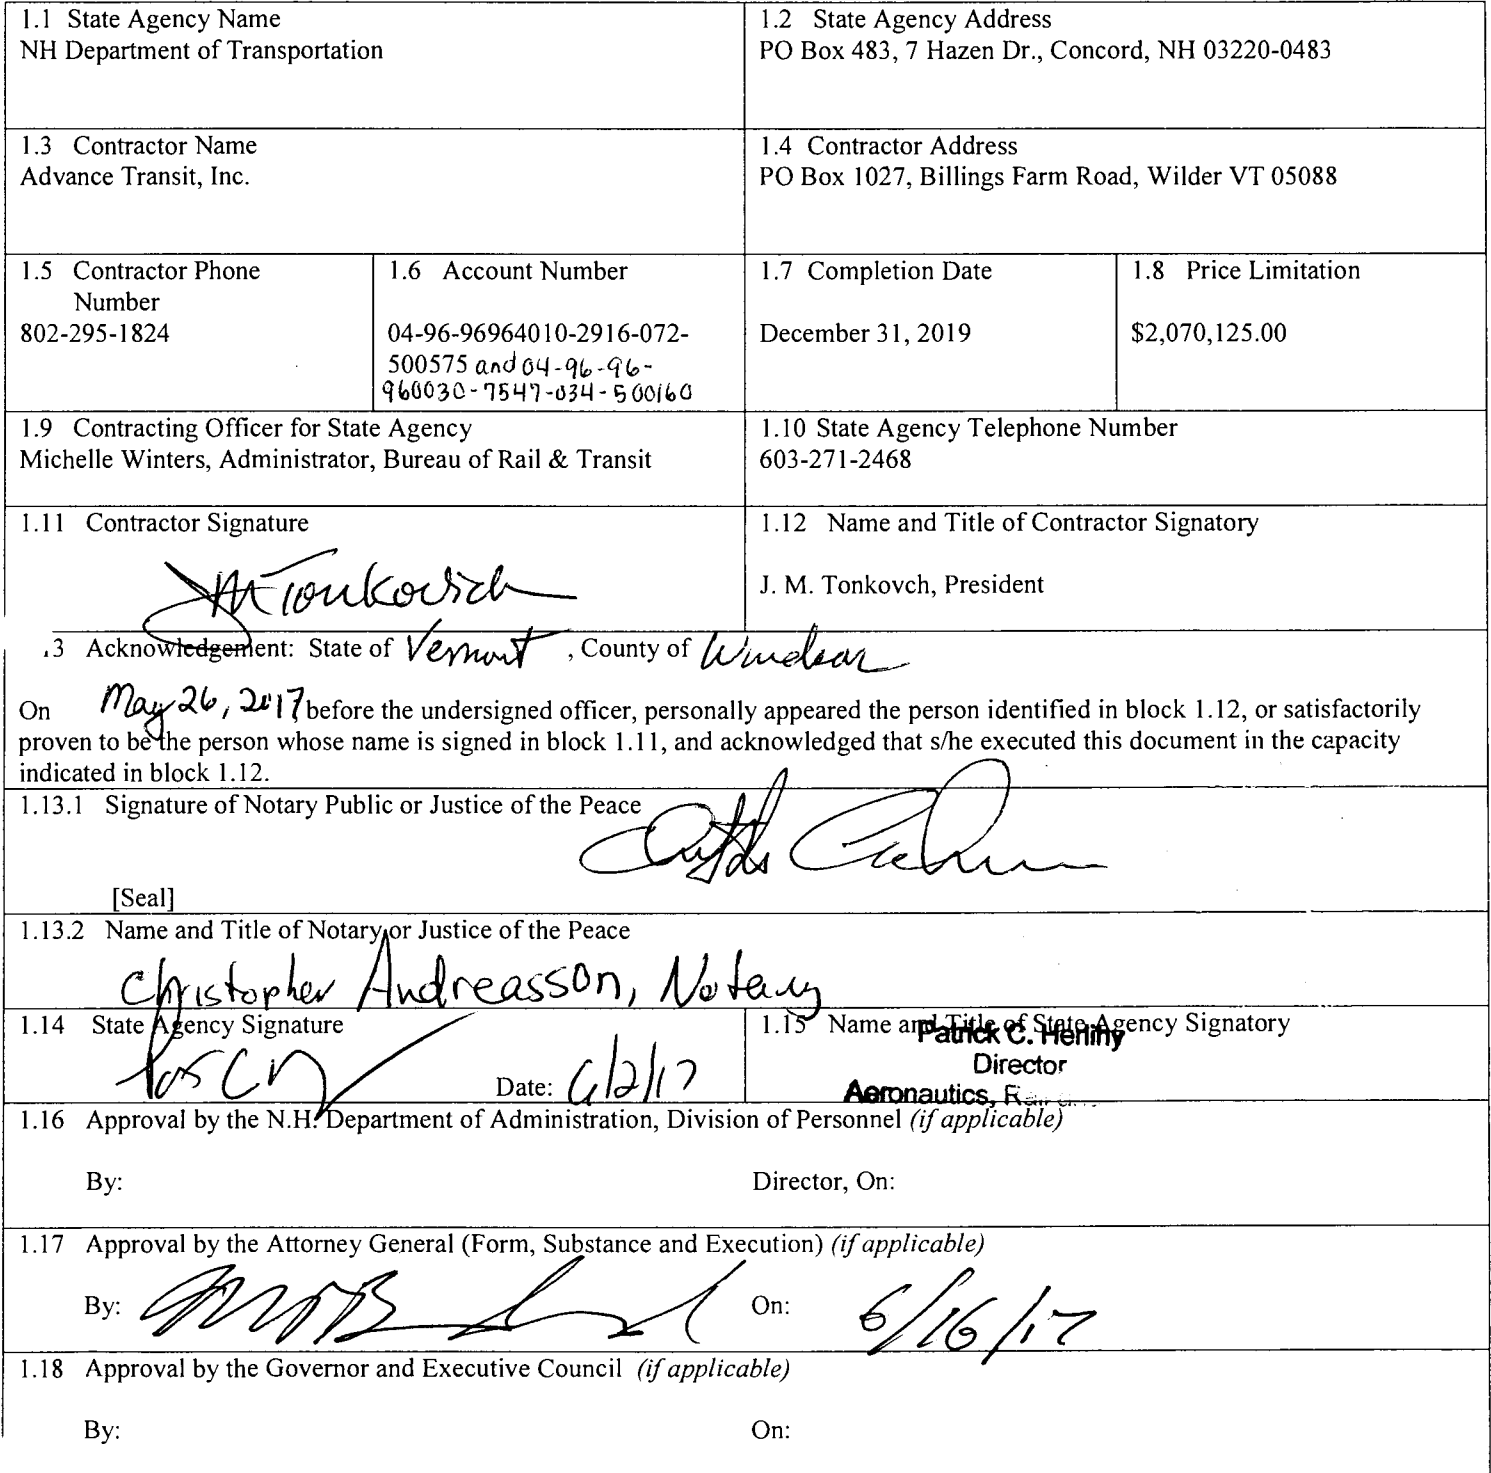 1.1 State Agency Name
NH Department of Transportation
1.2 State Agency Address
PO Box 483, 7 Hazen Dr., Concord, NH 03220-0483
1.3 Contractor Name
Advance Transit, Inc.
1.4 Contractor Address
PO Box 1027, Billings Farm Road, Wilder VT 05088
1.5 Contractor Phone
Number
802-295-1824
1.6 Account Number
04-96-96964010-2916-072-
500575 and 04-96-96-
960030-7547-034-500160
1.7 Completion Date
December 31, 2019
1.8 Price Limitation
$2,070,125.00
1.9 Contracting Officer for State Agency
Michelle Winters, Administrator, Bureau of Rail & Transit
1.10 State Agency Telephone Number
603-271-2468
1.11 Contractor Signature
JM Tonkovich
1.12 Name and Title of Contractor Signatory
J. M. Tonkovch, President
.3 Acknowledgement: State of Vermont, County of Windsor
On May 26, 2017 before the undersigned officer, personally appeared the person identified in block 1.12, or satisfactorily
proven to be the person whose name is signed in block 1.11, and acknowledged that s/he executed this document in the capacity
indicated in block 1.12.
1.13.1 Signature of Notary Public or Justice of the Peace
[Seal]
1.13.2 Name and Title of Notary or Justice of the Peace
Christopher Andreasson, Notary
1.14 State Agency Signature
Date: 6/2/17
1.15 Name and Title of State Agency Signatory
Patrick C. Herlihy
Director
Aeronautics,
1.16 Approval by the N.H. Department of Administration, Division of Personnel (if applicable)
By: Director, On:
1.17 Approval by the Attorney General (Form, Substance and Execution) (if applicable)
By: On: 6/16/17
1.18 Approval by the Governor and Executive Council (if applicable)
By: On: